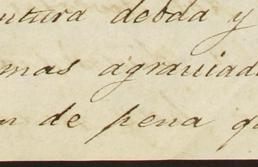 ntura debda y
mas agraviad
n de pena q